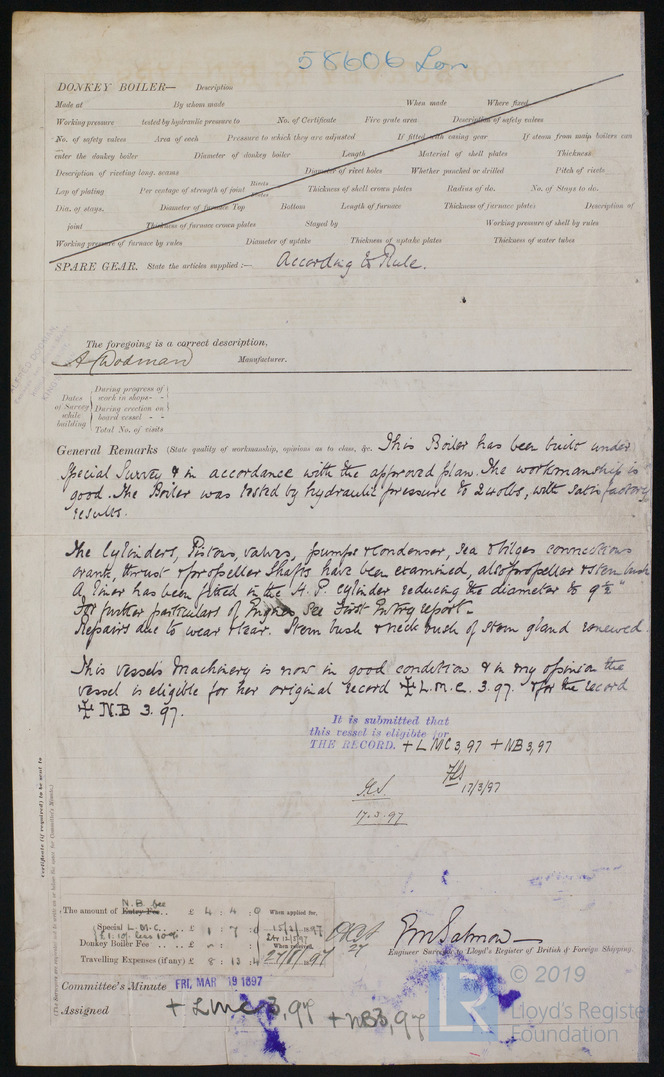 58606 Lon
DONKEY BOILER— Description
Made at By whom made When made Where fixed
Working pressure tested by hydraulic pressure to No. of Certificate Fire grate area Description of safety valves
No. of safety valves Area of each Pressure to which they are adjusted If fitted with easing gear If steam from main boilers can
enter the donkey boiler Diameter of donkey boiler Length Material of shell plates Thickness
Description of riveting long. seams Diameter of rivet holes Whether punched or drilled Pitch of rivets
Lap of plating Per centage of strength of joint Rivets Plates Thickness of shell crown plates Radius of do. No. of Stays to do.
Dia. of stays. Diameter of furnace Top Bottom Length of furnace Thickness of furnace plates Description of
joint Thickness of furnace crown plates Stayed by Working pressure of shell by rules
Working pressure of furnace by rules Diameter of uptake Thickness of uptake plates Thickness of water tubes
SPARE GEAR. State the articles supplied :— According to Rule.
The foregoing is a correct description,
A Dodman Manufacturer.
Dates of Survey while building
During progress of work in shops - -
During erection on board vessel - -
Total No. of visits
General Remarks (State quality of workmanship, opinions as to class, &c. This Boiler has been built under
Special Survey & in accordance with the approved plan. The workmanship is
good. The Boiler was tested by hydraulic pressure to 240lbs, with satisfactory
results.
The Cylinders, Pistons, valves, pumps & Condenser, sea & bilges connections
crank, thrust & propeller shafts have been examined, also propeller & stern bush
A liner has been fitted in the H.P. cylinder reducing the diameter to 9½"
For further particulars of Engines see First Entry report.
Repairs due to wear & tear. Stern bush & neck bush of stern gland renewed.
This vessels Machinery is now in good condition & in my opinion the
vessel is eligible for her original record + L.M.C. 3.97. & for the record
+ N.B 3.97.
It is submitted that
this vessel is eligible for
THE RECORD. + LMC 3,97 + NB 3,97
17/3/97
17.3.97
Certificate (if required) to be sent to
N.B fee
The amount of Entry Fee.. £ 4 : 4 : 0 When applied for,
Special L.M.C... £ 1 : 7 : 0
Donkey Boiler Fee .. .. £ When received,
Travelling Expenses (if any) £ 8 : 13 : 4
Engineer Surveyor to Lloyd's Register of British & Foreign Shipping.
Committee's Minute FRI. MAR 19 1897
Assigned + LMC 3,97 + NB 3,97
© 2019
LR
Lloyd's Register
Foundation